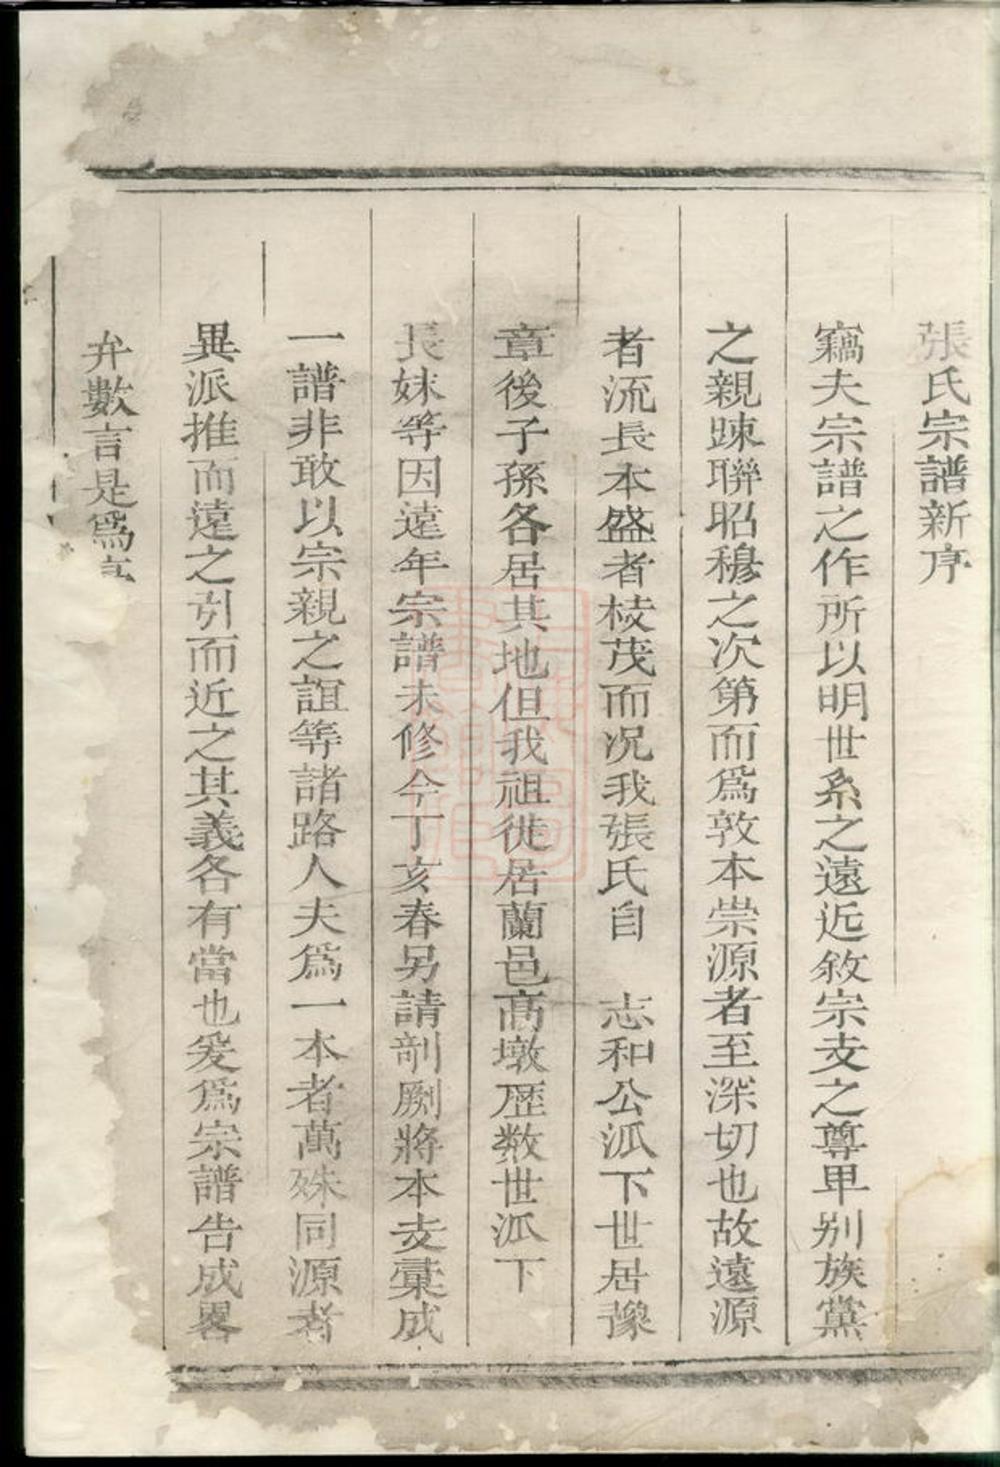 張氏宗譜新序
竊夫宗譜之作所以明世系之遠近敘宗支之尊卑別族黨
之親踈聯昭穆之次第而爲敦本崇源者至深切也故遠源
者流長本盛者枝茂而况我張氏自　志和公派下世居豫
章後子孫各居其地但我祖徙居蘭邑髙墩歷数世派下
長妹等因遠年宗譜未修今丁亥春另請剞劂將本支彙成
一譜非敢以宗親之誼等諸路人夫爲一本者萬殊同源者
異派推而遠之引而近之其義各有當也爰爲宗譜告成畧
弁數言是爲序